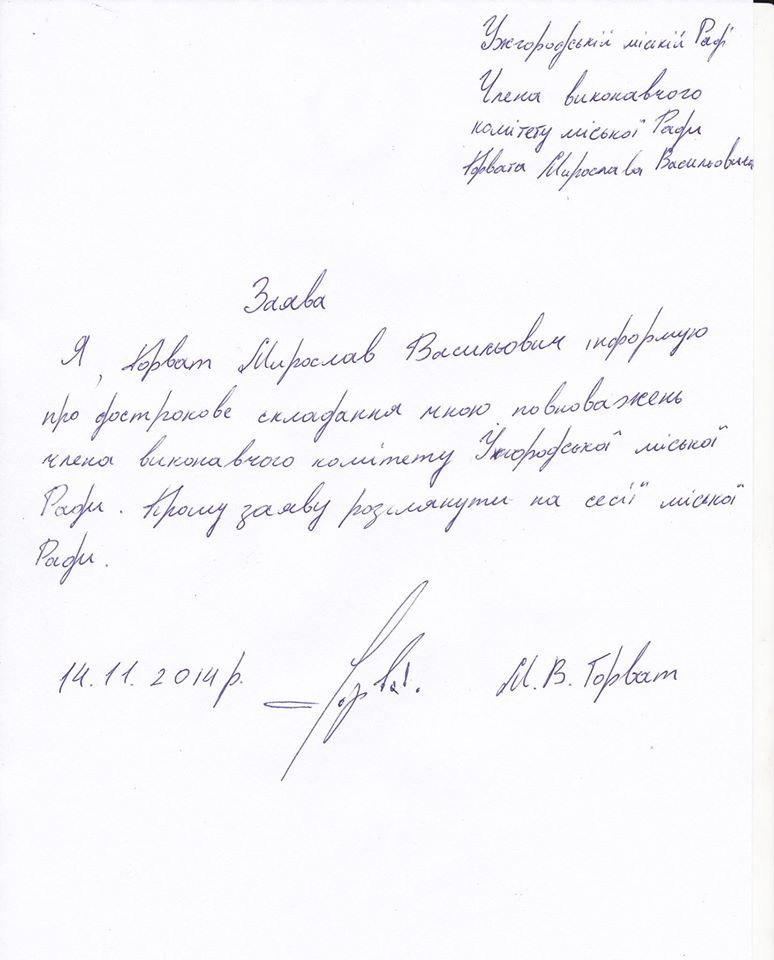 Ужгородській міській Раді
Члена виконавчого
комітету міської Ради
Горвата Мирослава Васильовича
Заява
Я, Горват Мирослав Васильович інформую
про дострокове складання мною повноважень
члена виконавчого комітету Ужгородської міської
Ради. Прошу заяву розглянути на сесії міської
Ради.
14.11.2014 р. М. В. Горват